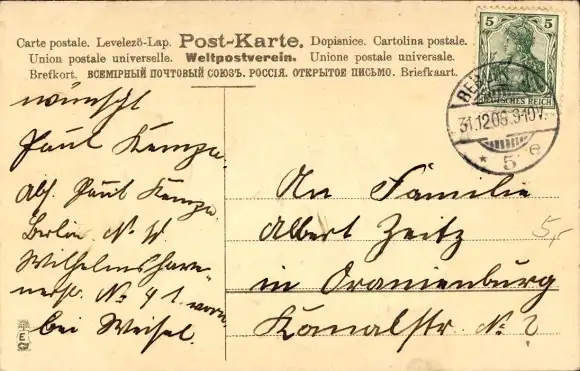 Carte postale. Levelező-Lap. Post-Karte. Dopisnice. Cartolina postale.
Union postale universelle. Weltpostverein. Unione postale universale.
Brefkort. ВСЕМІРНЫЙ ПОЧТОВЫЙ СОЮЗЪ. РОССІЯ. ОТКРЫТОЕ ПИСЬМО. Briefkaart.
5 5
DEUTSCHES REICH
BERLIN
31.12.06.9-10V.
* 5 e
wünscht
Paul Kempe.
Abs. Paul Kempe.
Berlin No W
Wilhelmshave-
nerstr. No 41 vorn
bei Weisel.
An Familie
Albert Zeitz
in Oranienburg
Kanalstr. No 2
5,-
E